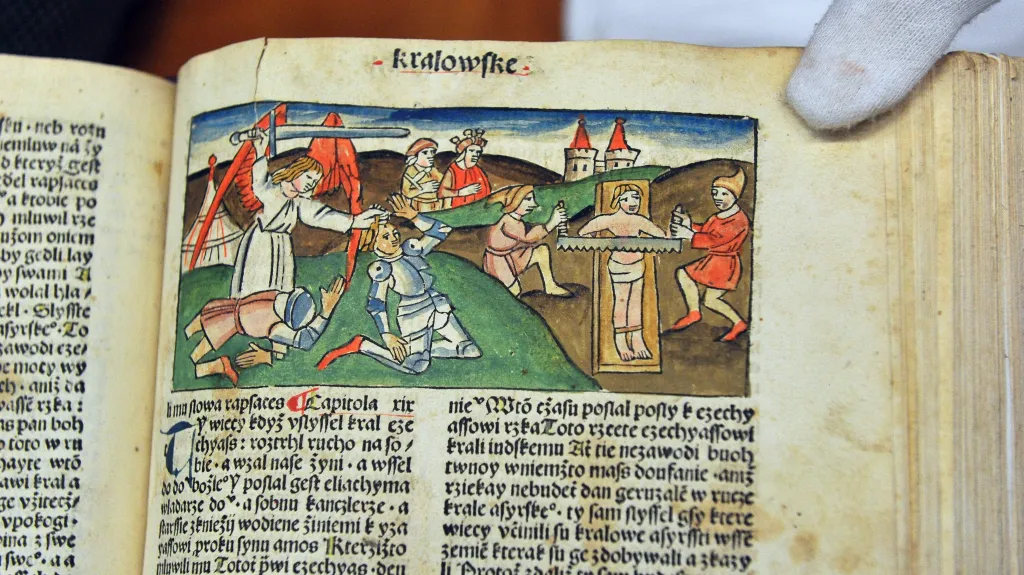 kralowske
ſku · neb rozn
niemluw na zy
d kteryz geſt
del rapſaces
a ktobie po
mluwil rze
by gedli lay
y ſwami A
wolal hla /
ekl · Slyſſte
aſyrſke° · To
zawodi eze/
e mocy wy
ech · aniz da
waſſe rzka :
as pan boh
toto w ru
hayte wto
awi kral a
ge vzitecz/
vpokogi ·
pina z ſwe
ſwe° · a a
li mu ſlowa rapſaces Capitola xix
Ty wiecy kdyz vſlyſſel kral eze
chyaſs : roztrhl rucho na ſo /
bie · a wzal naſe zyni · a wſſel
do do° bozie° Y poſlal geſt eliachyma
wladarze do° · a ſobnu kanczlerze · a
ſtarſſie zkniezij wodiene ziniemi k yza
yaſſowi proku ſynu amos Kterzizto
mluwili mu Totot pwi ezechyas · den
nie° Wto czaſu poſlal poſly k ezechy
aſſowi rzka Toto rzcete ezechyaſſowi
krali iudſkemu At tie nezawodi buoh
twnoy wniemzto maſs doufanie · aniz
rziekay nebudet dan geruzale w rucze
krale aſyrſke° · ty ſam ſlyſſel gſy ktere
wiecy vcinili ſu kralowe aſyrſſti wſſe
zemie kterak ſu ge zdobywali a zkazy
li Protoz zdaliz